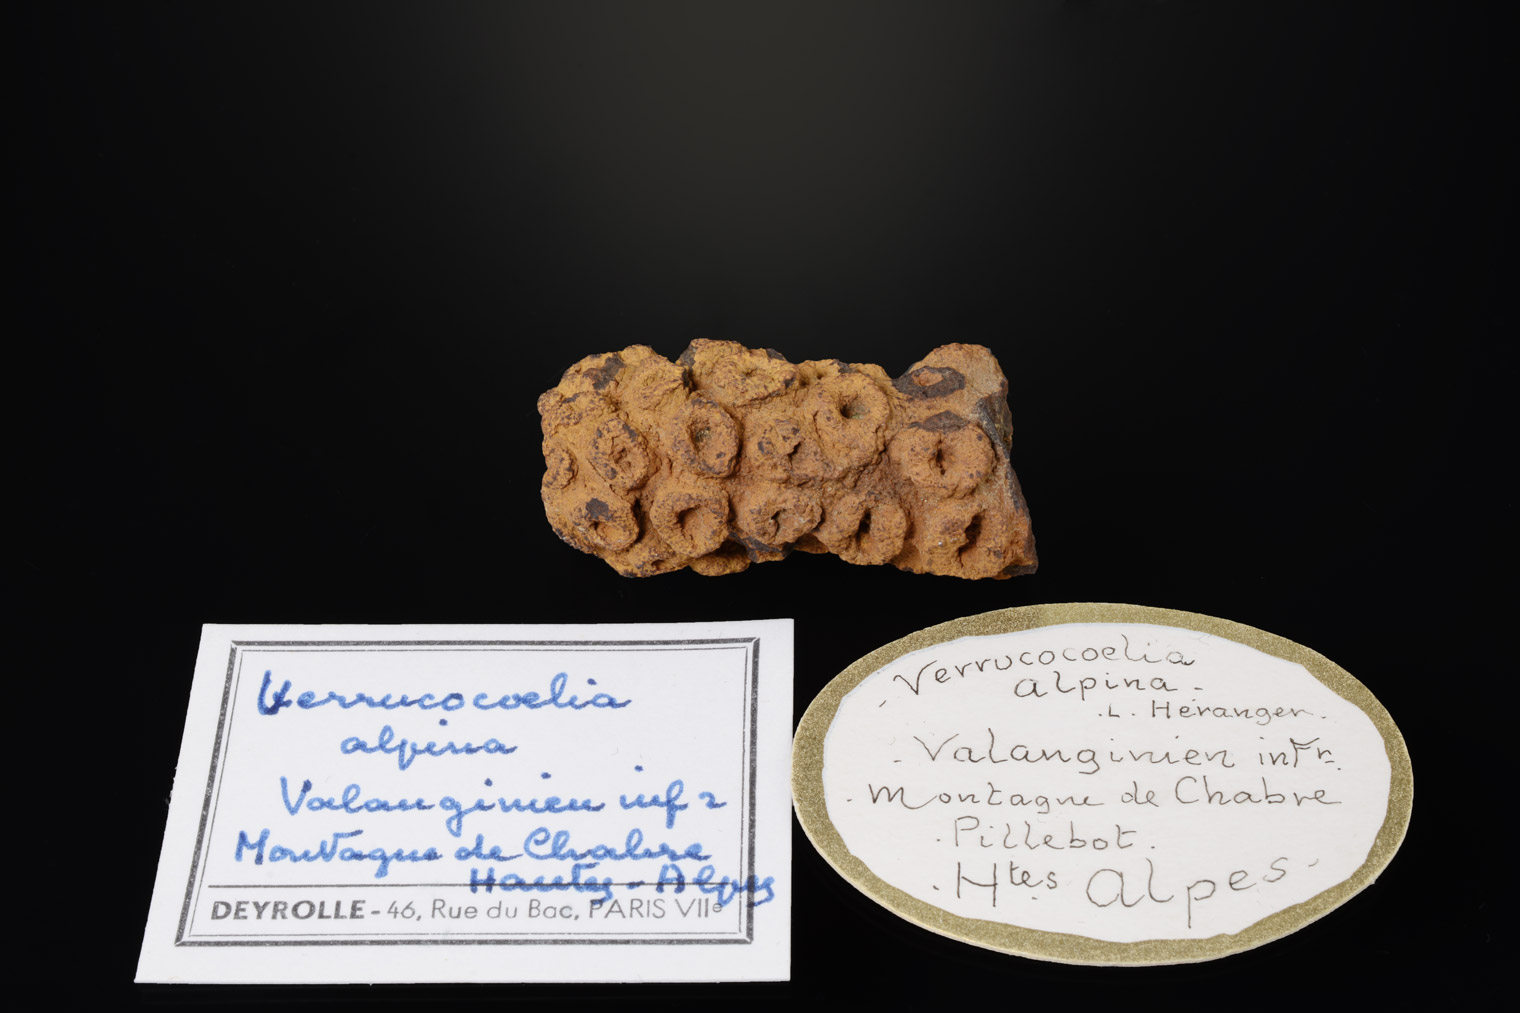 Verrucocoelia
alpina
Valanginien infr
Montagne de Chabre
Hautes-Alpes
DEYROLLE - 46, Rue du Bac, PARIS VIIe
Verrucocoelia
alpina.
.L. Héranger.
. Valanginien infr.
. Montagne de Chabre
. Pillebot.
. Htes Alpes.